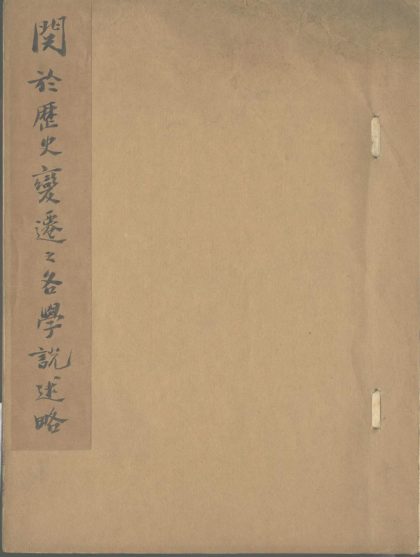 関於歷史變遷之各學説述略